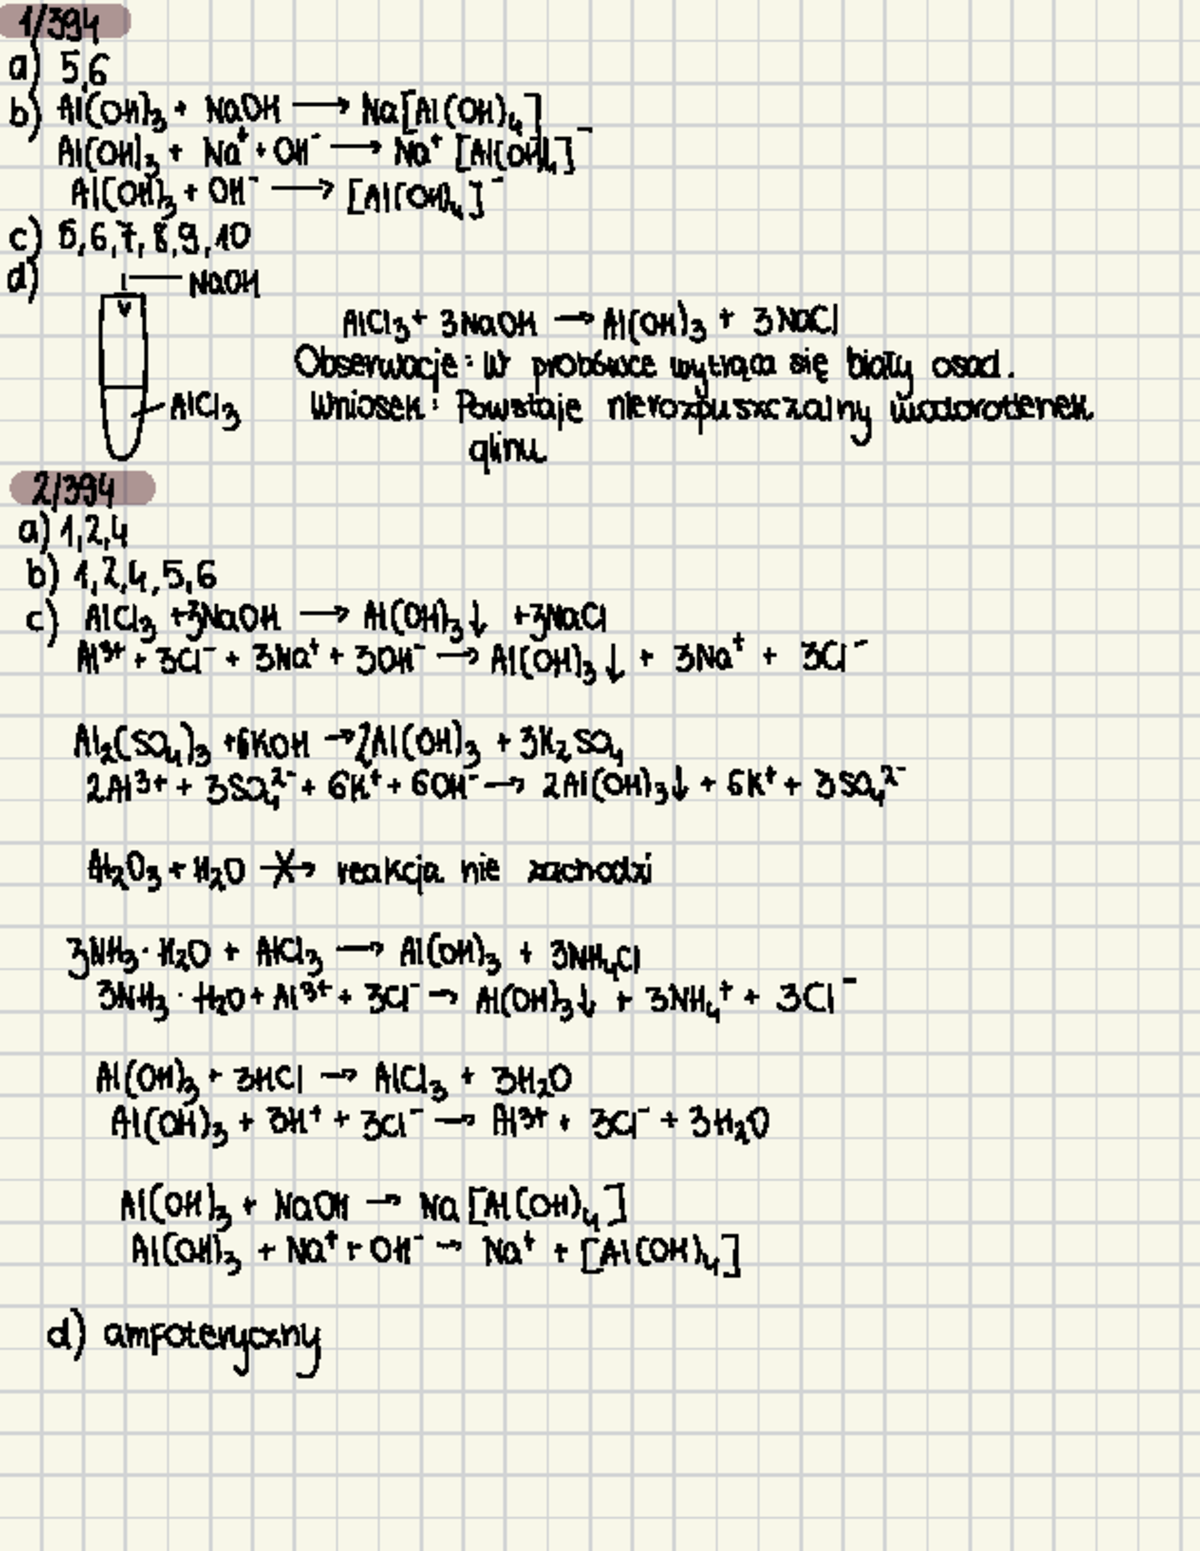 1/394
a) 5,6
b) Al(OH)₃ + NaOH ⟶ Na[Al(OH)₄]
Al(OH)₃ + Na⁺ + OH⁻ ⟶ Na⁺ [Al(OH)₄]⁻
Al(OH)₃ + OH⁻ ⟶ [Al(OH)₄]⁻
c) 5,6,7,8,9,10
d)
NaOH
AlCl₃ + 3NaOH ⟶ Al(OH)₃ + 3NaCl
Obserwacje: W probówce wytrąca się biały osad.
AlCl₃
Wniosek: Powstaje nierozpuszczalny wodorotlenek
glinu
2/394
a) 1,2,4
b) 1,2,4,5,6
c) AlCl₃ +3NaOH ⟶ Al(OH)₃↓ +3NaCl
Al³⁺ + 3Cl⁻ + 3Na⁺ + 3OH⁻ ⟶ Al(OH)₃↓ + 3Na⁺ + 3Cl⁻
Al₂(SO₄)₃ +6KOH → 2Al(OH)₃ + 3K₂SO₄
2Al³⁺ + 3SO₄²⁻ + 6K⁺ + 6OH⁻ → 2Al(OH)₃↓ + 6K⁺ + 3SO₄²⁻
Al₂O₃ + H₂O -X→ reakcja nie zachodzi
3NH₃·H₂O + AlCl₃ ⟶ Al(OH)₃ + 3NH₄Cl
3NH₃·H₂O + Al³⁺ + 3Cl⁻ → Al(OH)₃↓ + 3NH₄⁺ + 3Cl⁻
Al(OH)₃ + 3HCl → AlCl₃ + 3H₂O
Al(OH)₃ + 3H⁺ + 3Cl⁻ → Al³⁺ + 3Cl⁻ + 3H₂O
Al(OH)₃ + NaOH → Na[Al(OH)₄]
Al(OH)₃ + Na⁺ + OH⁻ → Na⁺ + [Al(OH)₄]
d) amfoteryczny